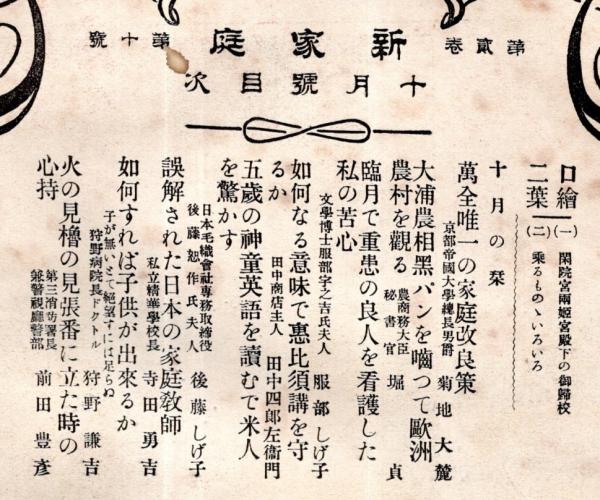 第貳卷 新家庭 第十號
十月號目次
口繪
(一) 閑院宮兩姬宮殿下の御歸校
二葉
(二) 乘るものゝいろいろ
十月の栞
萬全唯一の家庭改良策
京都帝國大學總長男爵 菊地大麓
大浦農相黑パンを嚙つて歐洲
農村を觀る
農商務大臣
秘書官 堀貞
臨月で重患の良人を看護した
私の苦心
文學博士服部宇之吉氏夫人 服部しげ子
如何なる意味で惠比須講を守
るか
田中商店主人 田中四郎左衞門
五歲の神童英語を讀むで米人
を驚かす
日本毛織會社專務取締役
後藤恕作氏夫人 後藤しげ子
誤解された日本の家庭敎師
私立精華學校長 寺田勇吉
如何すれば子供が出來るか
子が無いとて絕望すには足らぬ
狩野病院長ドクトル 狩野謙吉
火の見櫓の見張番に立た時の
心持
第三消防署長
兼警視廳警部 前田豊彦